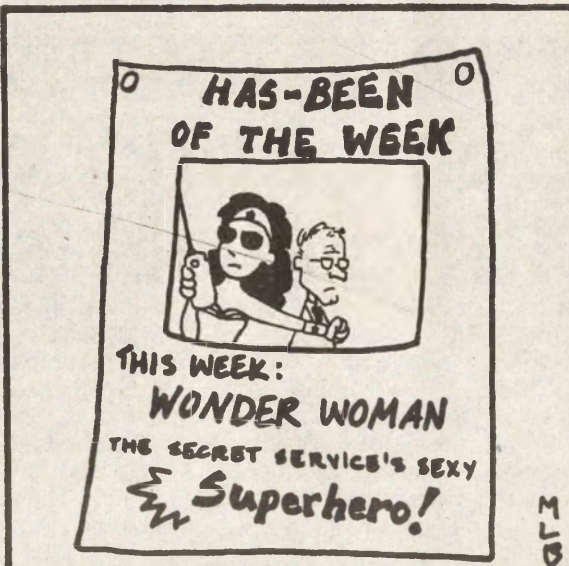 HAS-BEEN
OF THE WEEK
THIS WEEK:
WONDER WOMAN
THE SECRET SERVICE'S SEXY
Superhero!
MLB